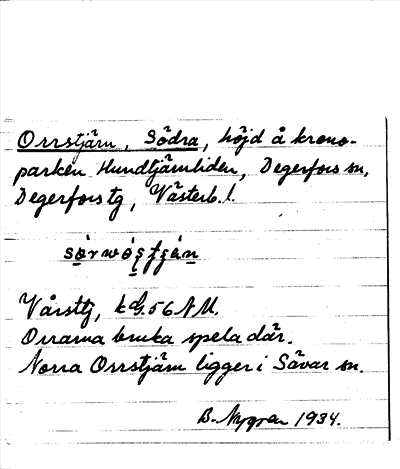 Orrstjärn, Södra, höjd å krono-
parken Hundtjärnliden, Degerfors sn,
Degerfors tg, Västerb. l.
Vårsttj, kbl. 56 NM.
Orrarna bruka spela där.
Norra Orrstjärn ligger i Sävar sn.
B. Nygren 1934.